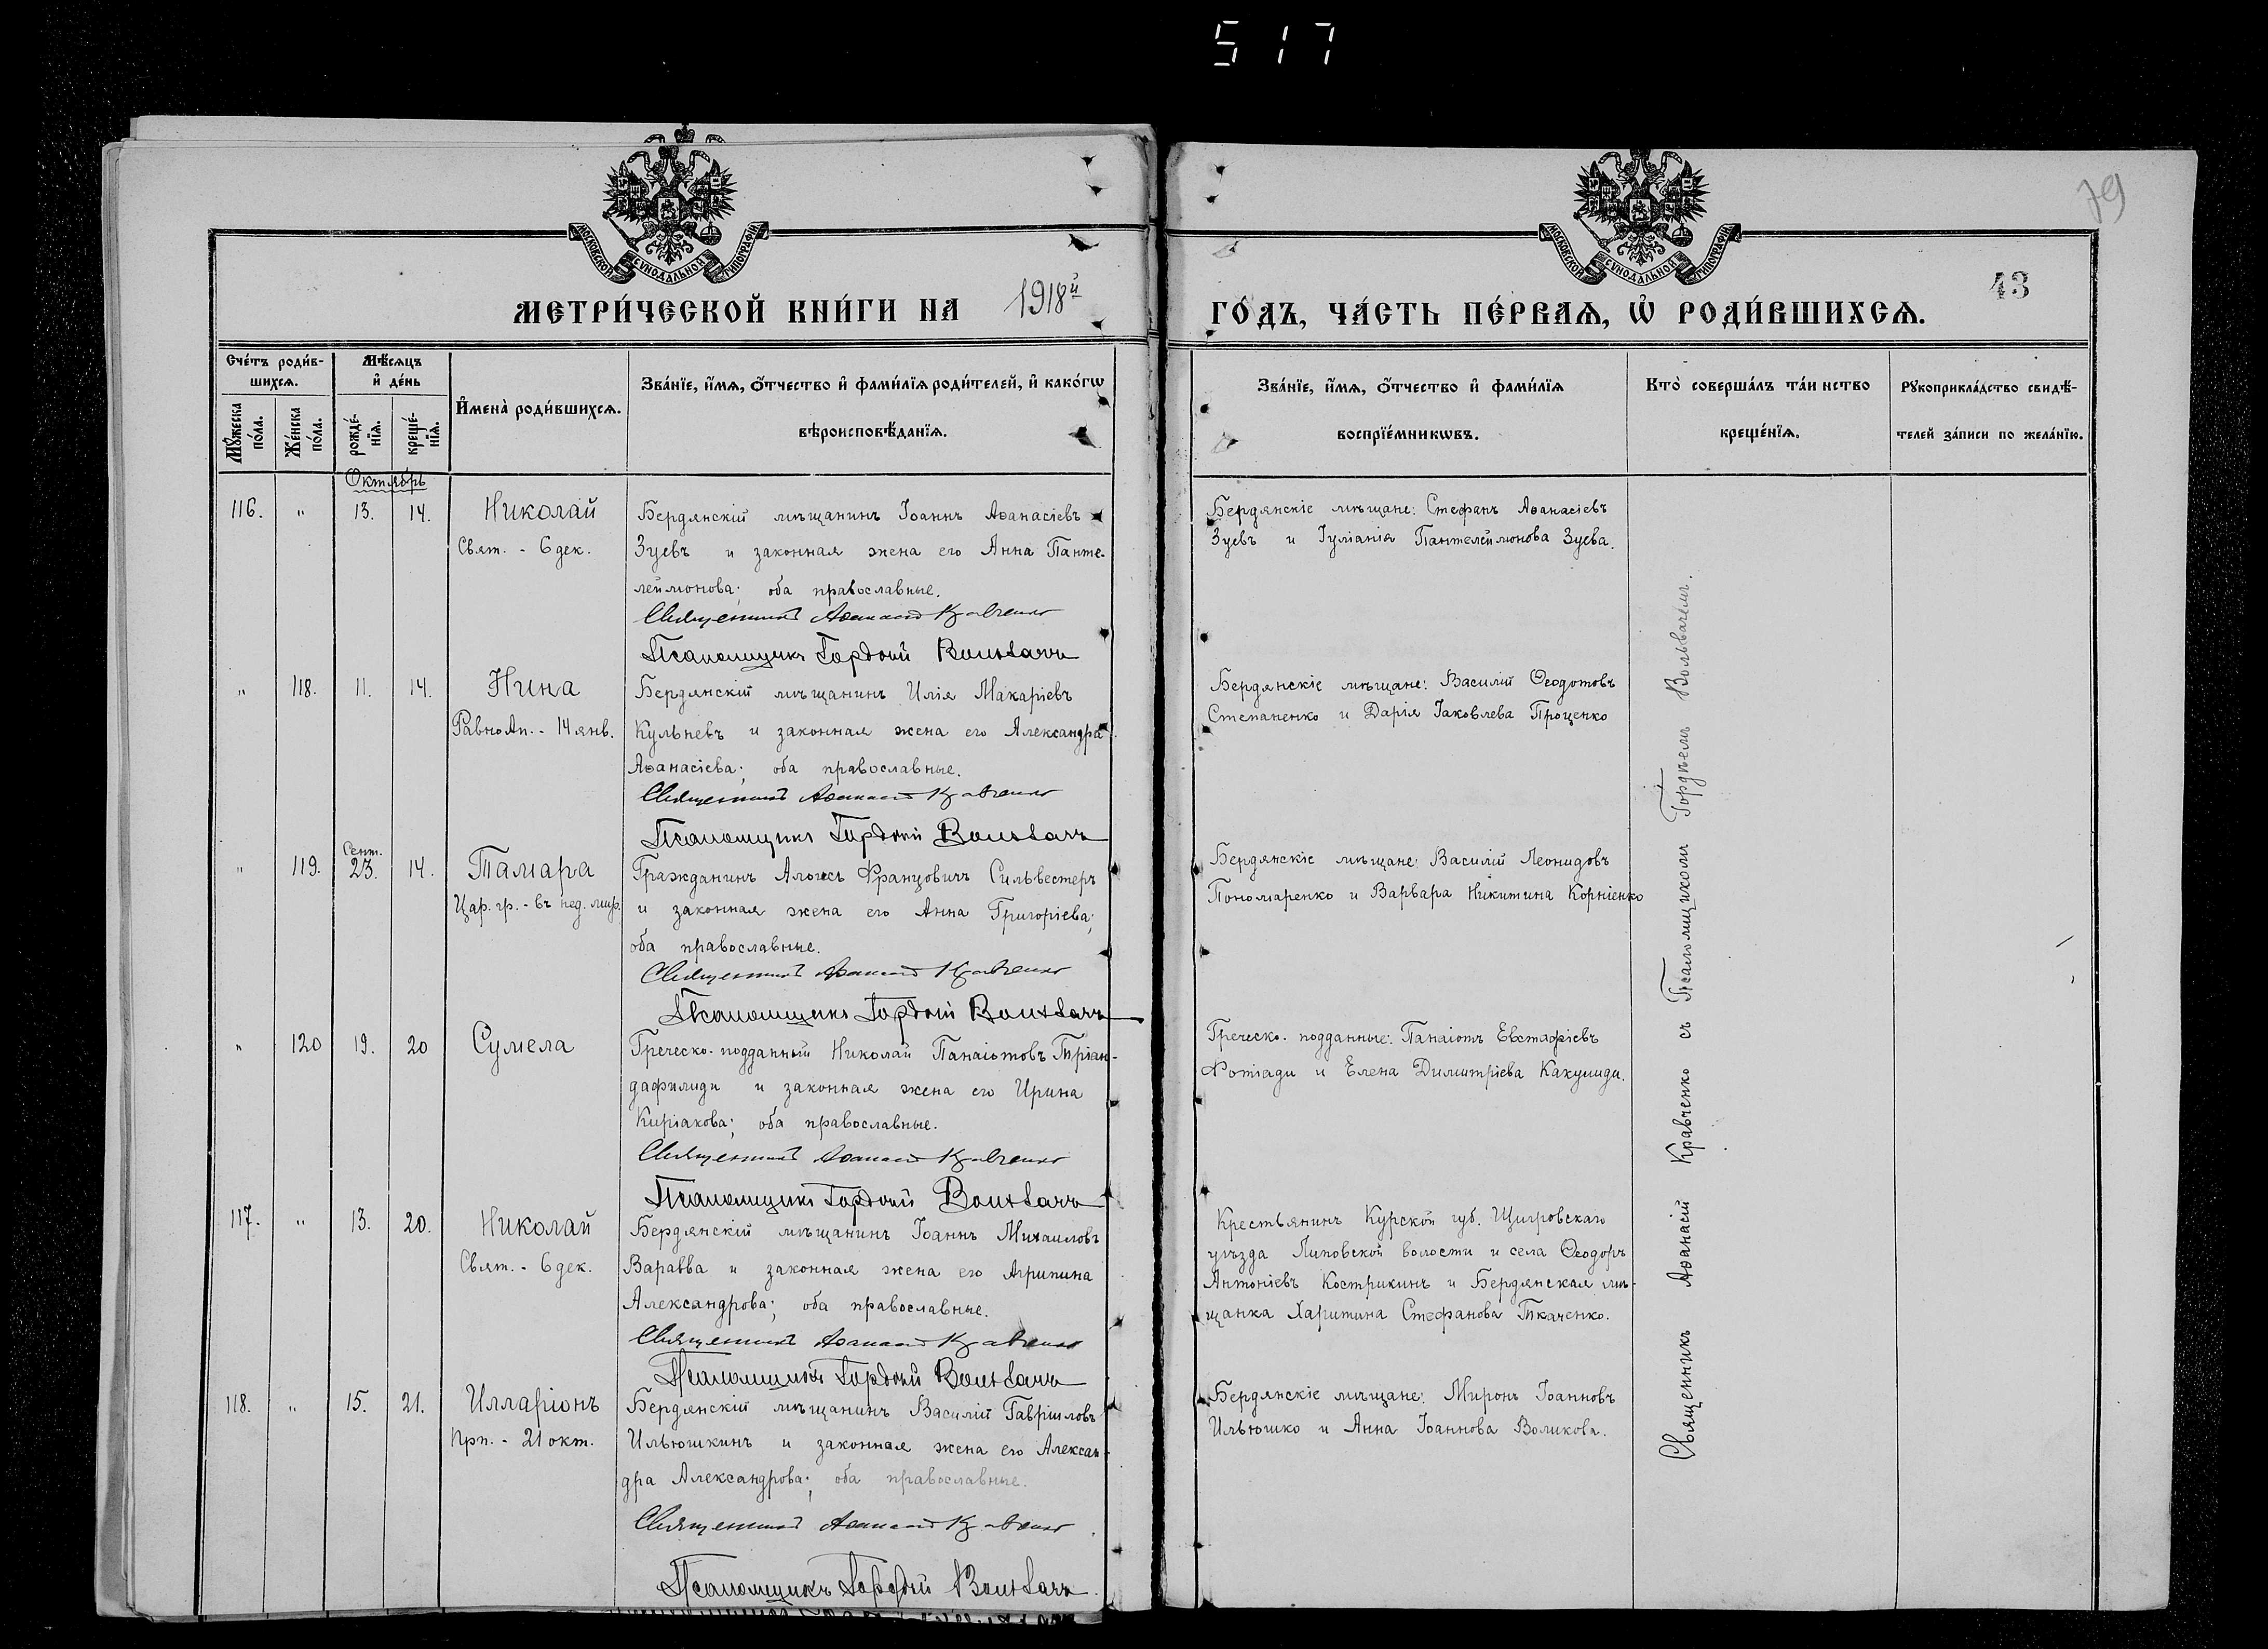 517
79
43
МОСКОВСКОЙ СѴНОДАЛЬНОЙ ТИПОГРАФІИ
МОСКОВСКОЙ СѴНОДАЛЬНОЙ ТИПОГРАФІИ
МЕТРИ́ЧЕСКОЙ КНИ́ГИ НА 1918й
ГО́ДЪ, ЧА́СТЬ ПЕ́РВАѦ, Ѽ РОДИ́ВШИХСѦ.
Сче́тъ роди́в-
шихсѧ.
Мꙋ́жеска по́ла.
Же́нска по́ла.
Мѣ́сѧцъ
и҆ де́нь
рожде́-
нїѧ.
креще́-
нїѧ.
И҆мена̀ роди́вшихсѧ.
Зва́нїе, и҆́мѧ, ѻ҆́тчество и҆ фами́лїѧ роди́телей, и҆ како́гѡ
вѣроисповѣ́данїѧ.
Зва́нїе, и҆́мѧ, ѻ҆́тчество и҆ фами́лїѧ
воспрїе́мникѡвъ.
Кто̀ соверша́лъ та́инство
креще́нїѧ.
Рꙋкоприкла́дство свидѣ́-
телей за́писи по жела́нїю.
Октябрь
116. " 13. 14. Николай
Свят. - 6 дек.
Бердянскій мѣщанинъ Іоаннъ Аѳанасіевъ
Зуевъ и законная жена его Анна Панте-
леймонова; оба православные.
Священникъ Аѳанасій Кравченко
Псаломщикъ Гордѣй Вольвачъ
Бердянскіе мѣщане: Стефанъ Аѳанасіевъ
Зуевъ и Іуліанія Пантелеймонова Зуева.
" 118. 11. 14. Нина
РавноАп. - 14 янв.
Бердянскій мѣщанинъ Илія Макаріевъ
Кульневъ и законная жена его Александра
Аѳанасіева; оба православные.
Священникъ Аѳанасій Кравченко
Псаломщикъ Гордѣй Вольвачъ
Бердянскіе мѣщане: Василій Ѳеодотовъ
Степаненко и Дарія Іаковлева Проценко
" 119. Сент. 23. 14. Тамара
Цар. гр. - въ нед. мир.
Гражданинъ Алоисъ Францовичъ Сильвестеръ
и законная жена его Анна Григоріева;
оба православные.
Священникъ Аѳанасій Кравченко
Псаломщикъ Гордѣй Вольвачъ
Бердянскіе мѣщане: Василій Леонидовъ
Пономаренко и Варвара Никитина Корніенко
" 120 19. 20 Сумела
Греческо-подданный Николай Панаіотовъ Тріан-
дафилиди и законная жена его Ирина
Киріакова; оба православные.
Священникъ Аѳанасій Кравченко
Псаломщикъ Гордѣй Вольвачъ
Греческо-подданные: Панаіотъ Евстафіевъ
Фотіади и Елена Димитріева Какулиди.
117. " 13. 20. Николай
Свят. - 6 дек.
Бердянскій мѣщанинъ Іоаннъ Михаиловъ
Варавва и законная жена его Агрипина
Александрова; оба православные.
Священникъ Аѳанасій Кравченко
Псаломщикъ Гордѣй Вольвачъ
Крестьянинъ Курской губ. Щигровскаго
уѣзда Липовской волости и села Ѳеодоръ
Антоніевъ Кострикинъ и Бердянская мѣ-
щанка Харитина Стефанова Ткаченко.
118. " 15. 21. Илларіонъ
Прп. - 21 окт.
Бердянскій мѣщанинъ Василій Гавріиловъ
Ильюшкинъ и законная жена его Алексан-
дра Александрова; оба православные.
Священникъ Аѳанасій Кравченко
Псаломщикъ Гордѣй Вольвачъ
Бердянскіе мѣщане: Миронъ Іоанновъ
Ильюшко и Анна Іоаннова Воликова.
Священникъ Аѳанасій Кравченко съ Псаломщикомъ Гордѣемъ Вольвачемъ.